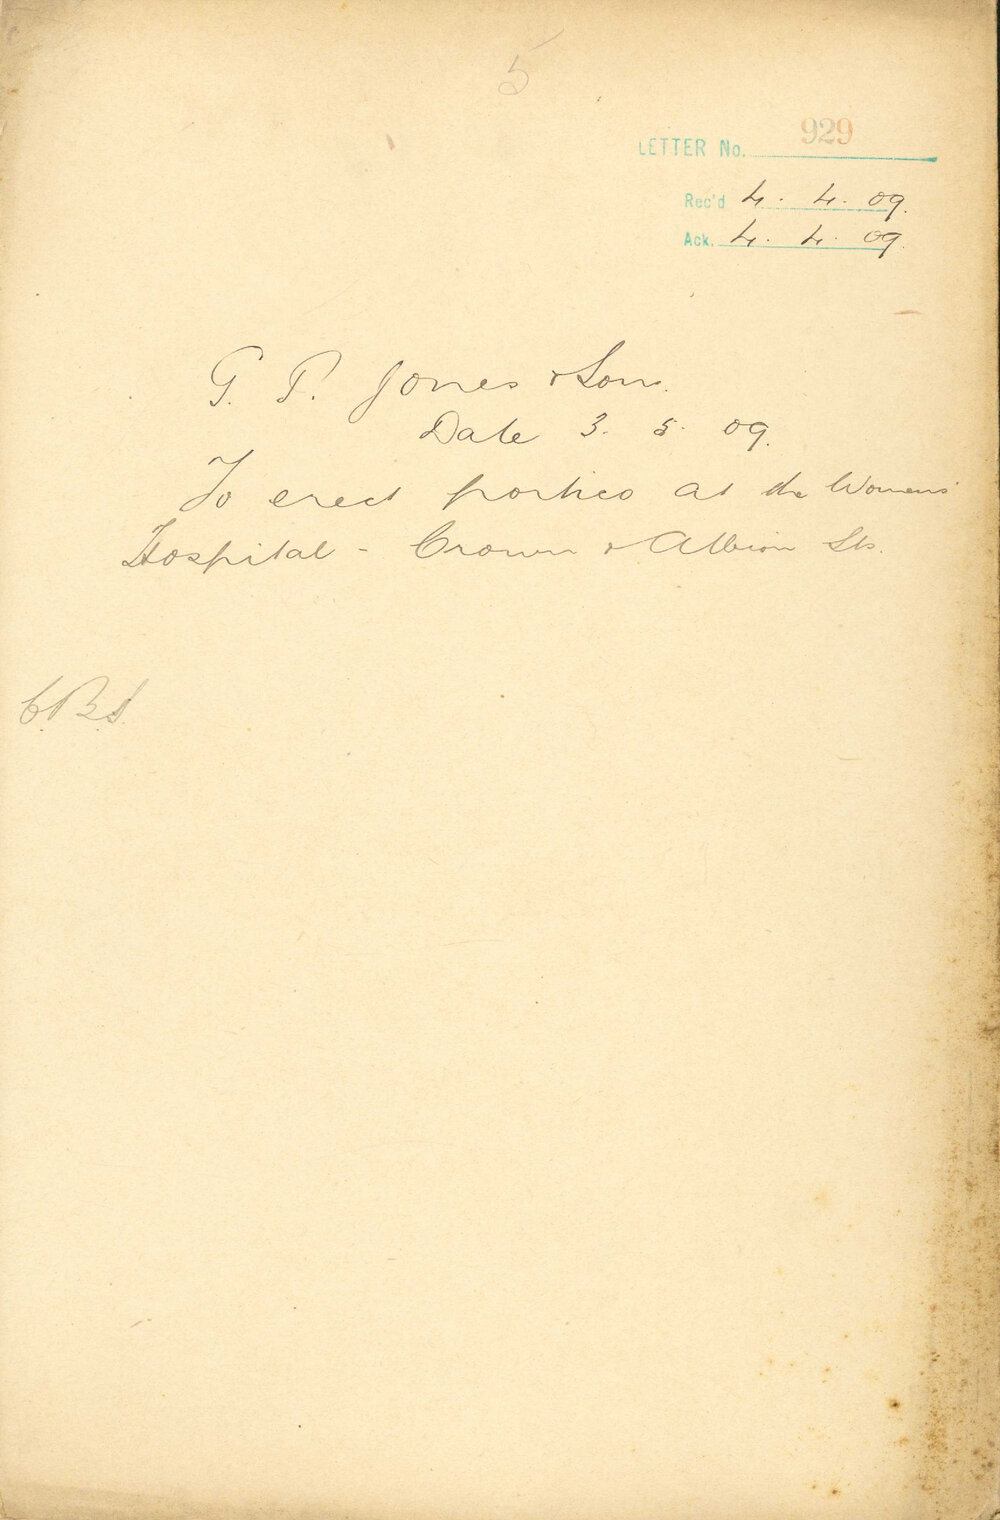 5
LETTER No. 929
Rec'd 4. 4. 09.
Ack. 4. 4. 09.
G. P. Jones & Sons.
Date 3. 5. 09.
To erect portico at the Womens'
Hospital - Crown & Albion Sts.
C.B.S.